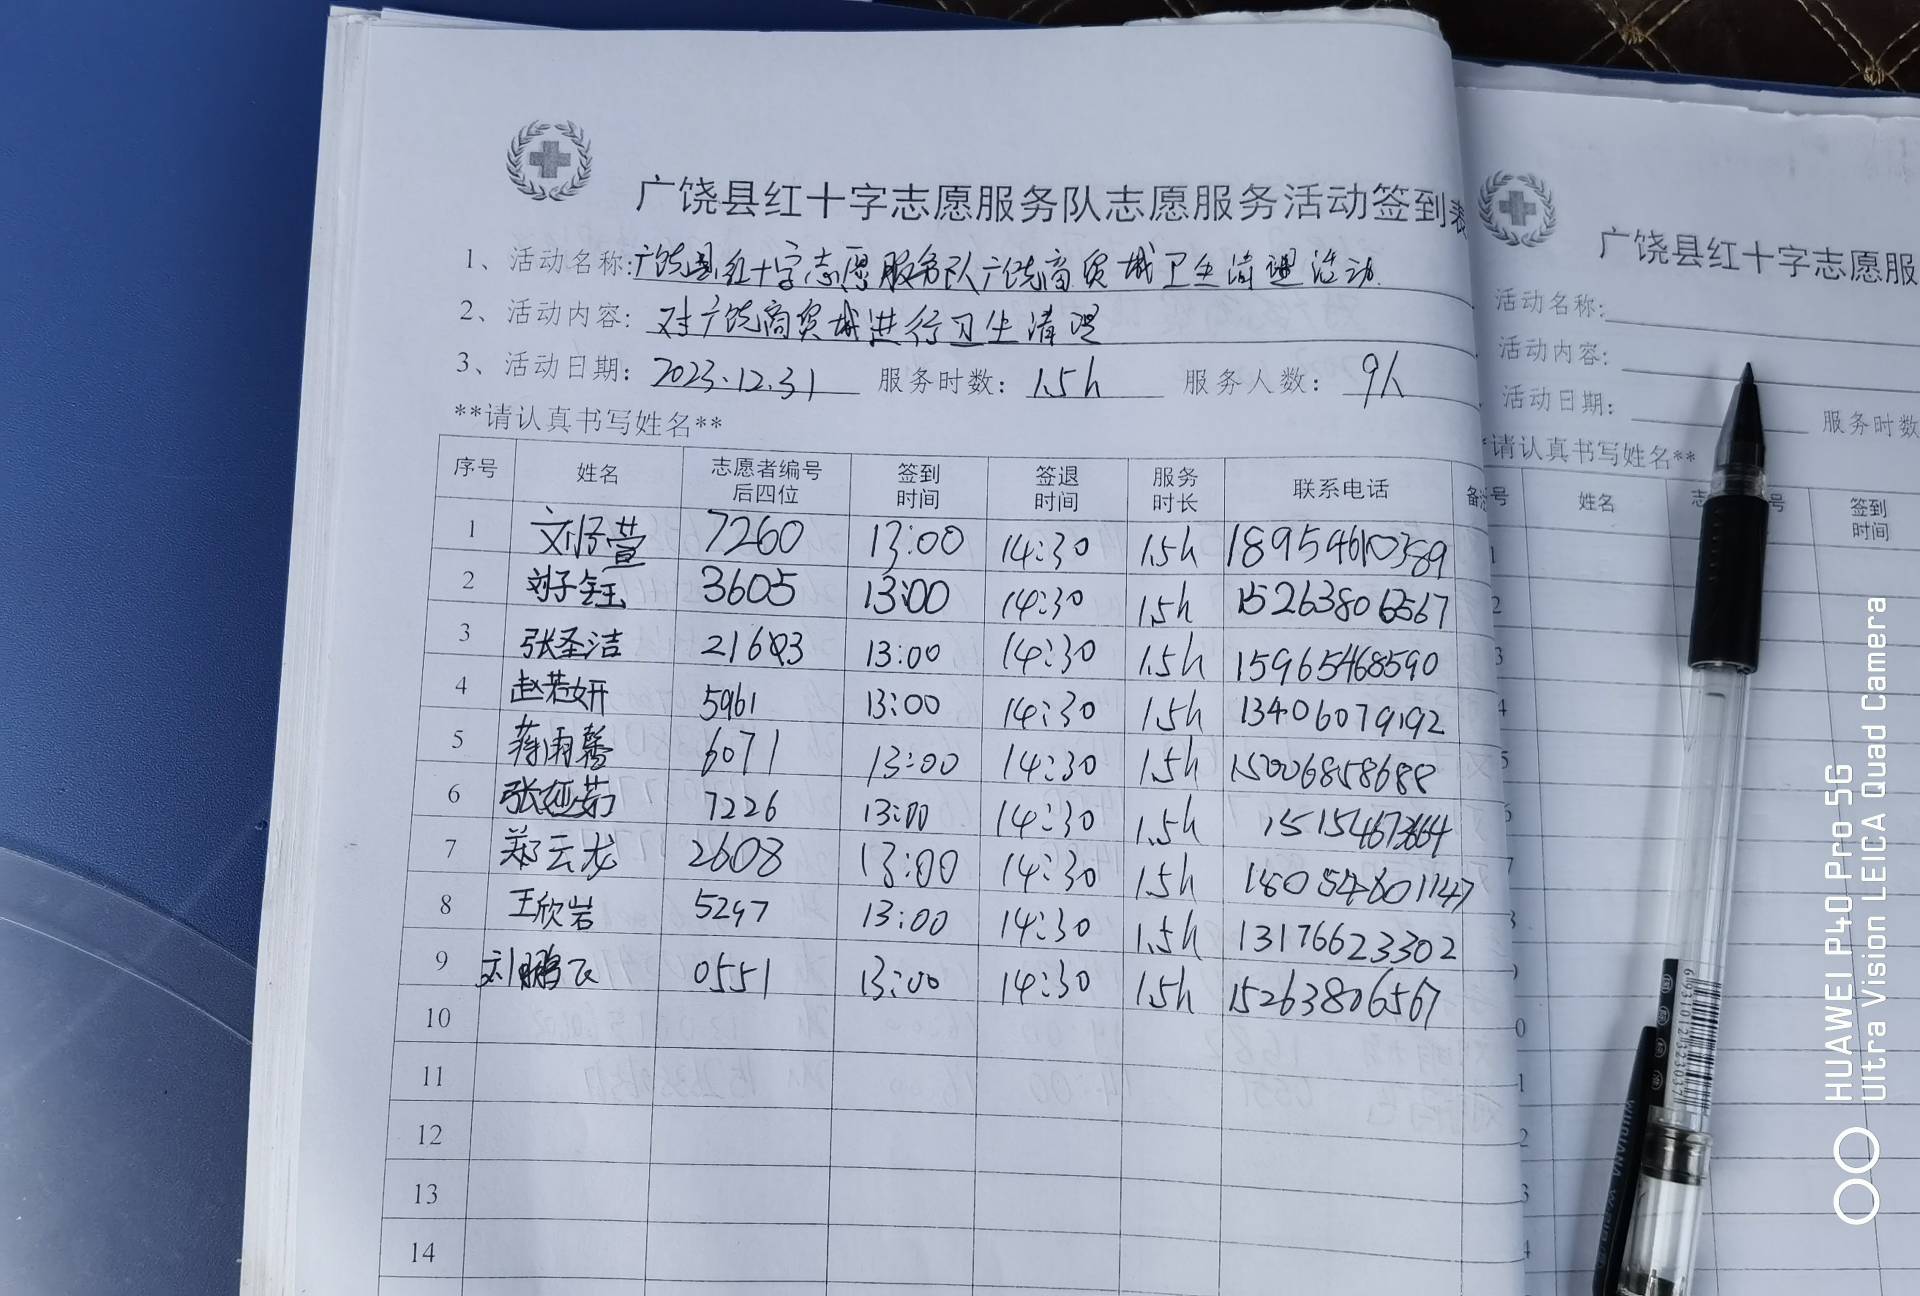 广饶县红十字志愿服务队志愿服务活动签到表
1、活动名称:广饶县红十字志愿服务队广饶商贸城卫生清理活动.
2、活动内容: 对广饶商贸城进行卫生清理
3、活动日期: 2023.12.31 服务时数: 1.5h 服务人数: 9人
**请认真书写姓名**
序号 姓名 志愿者编号后四位 签到时间 签退时间 服务时长 联系电话 备注
1 刘伊萱 7260 13:00 14:30 1.5h 18954610389
2 刘子钰 3605 13:00 14:30 1.5h 15263806567
3 张圣洁 2163 13:00 14:30 1.5h 15965468590
4 赵若妍 5961 13:00 14:30 1.5h 13406079192
5 蒋雨馨 6071 13:00 14:30 1.5h 15006858688
6 张茹 7226 13:00 14:30 1.5h
7 郑云龙 2608 13:00 14:30 1.5h
8 王欣岩 5297 13:00 14:30 1.5h 13176623302
9 刘鹏飞 0551 13:00 14:30 1.5h 15263806567
10
11
12
13
14
广饶县红十字志愿服
活动名称:
活动内容:
活动日期: 服务时数
请认真书写姓名**
号 姓名 志 号 签到时间
HUAWEI P40 Pro 5G
Ultra Vision LEICA Quad Camera